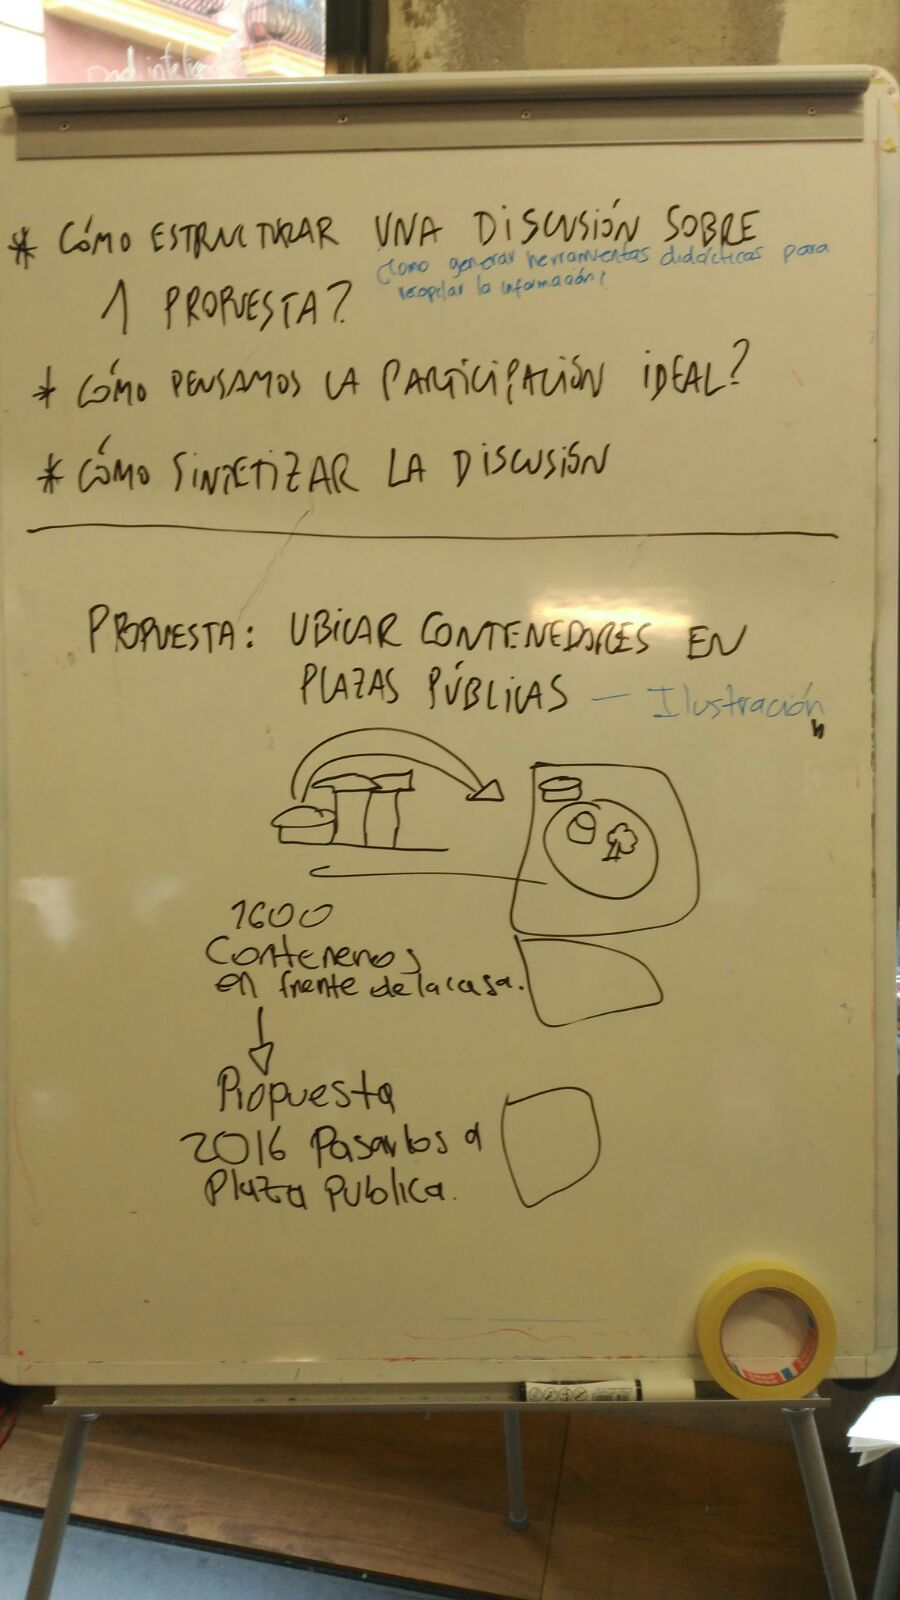 * CÓMO ESTRUCTURAR UNA DISCUSIÓN SOBRE
1 PROPUESTA?
¿Como generar herramientas didácticas para
recopilar la información?
* CÓMO PENSAMOS LA PARTICIPACIÓN IDEAL?
* CÓMO SINTETIZAR LA DISCUSIÓN
PROPUESTA: UBICAR CONTENEDORES EN
PLAZAS PÚBLICAS — Ilustración
1600
Conteneros
en frente de la casa.
Propuesta
2016 Pasarlos a
Plaza Publica.